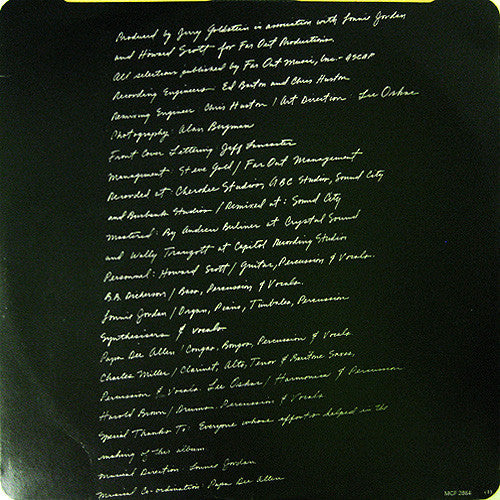 Produced by Jerry Goldstein in association with Lonnie Jordan
and Howard Scott for Far Out Productions.
All selections published by Far Out Music, Inc. - ASCAP
Recording Engineers: Ed Barton and Chris Huston
Remixing Engineer Chris Huston / Art Direction: Lee Oskar
Photography: Alan Bergman
Front Cover Lettering Jeff Lancaster
Management: Steve Gold / Far Out Management
Recorded at: Cherokee Studios, ABC Studios, Sound City
and Burbank Studios / Remixed at: Sound City
Mastered: By Andrew Berliner at Crystal Sound
and Wally Traugott at Capitol Recording Studios
Personnel: Howard Scott / Guitar, Percussion & Vocals.
B.B. Dickerson / Bass, Percussion & Vocals.
Lonnie Jordan / Organ, Piano, Timbales, Percussion
Synthesizers & vocals
Papa Dee Allen / Congas, Bongos, Percussion & Vocals
Charles Miller / Clarinet, Alto, Tenor & Baritone Saxes,
Percussion & Vocals Lee Oskar / Harmonica & Percussion
Harold Brown / Drums Percussion & Vocals
Special Thanks To: Everyone whose efforts helped in the
making of this album
Musical Direction: Lonnie Jordan
Musical Co-ordination: Papa Dee Allen
MCF 2864